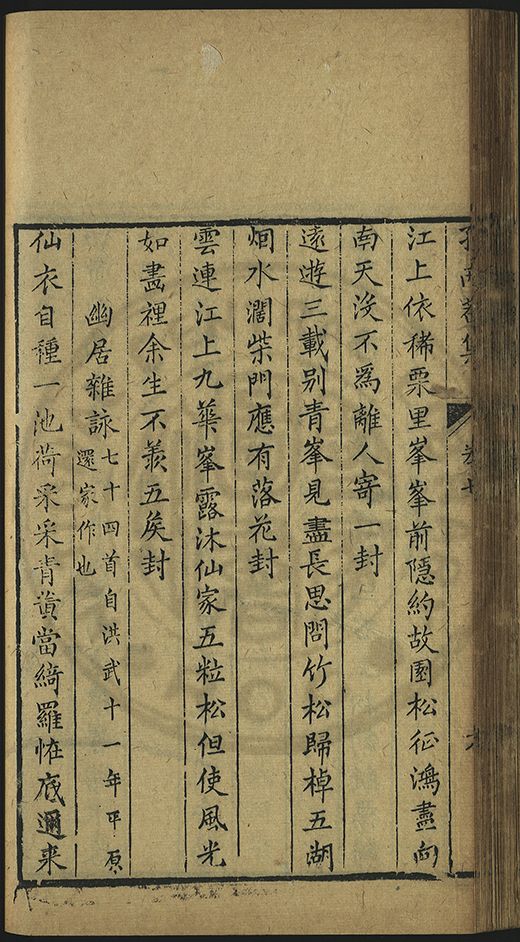 集 卷七
江上依稀栗里峯峯前隱約故園松征鴻盡向
南天没不爲離人寄一封
遠遊三載别青峯見盡長思問竹松歸棹五湖
烟水濶柴門應有落花封
雲連江上九華峯露沐仙家五粒松但使風光
如畫裡余生不羨五矦封
幽居雜詠七十四首自洪武十一年平原
還家作也
仙衣自種一池荷采采青黄當綺羅恠底邇来